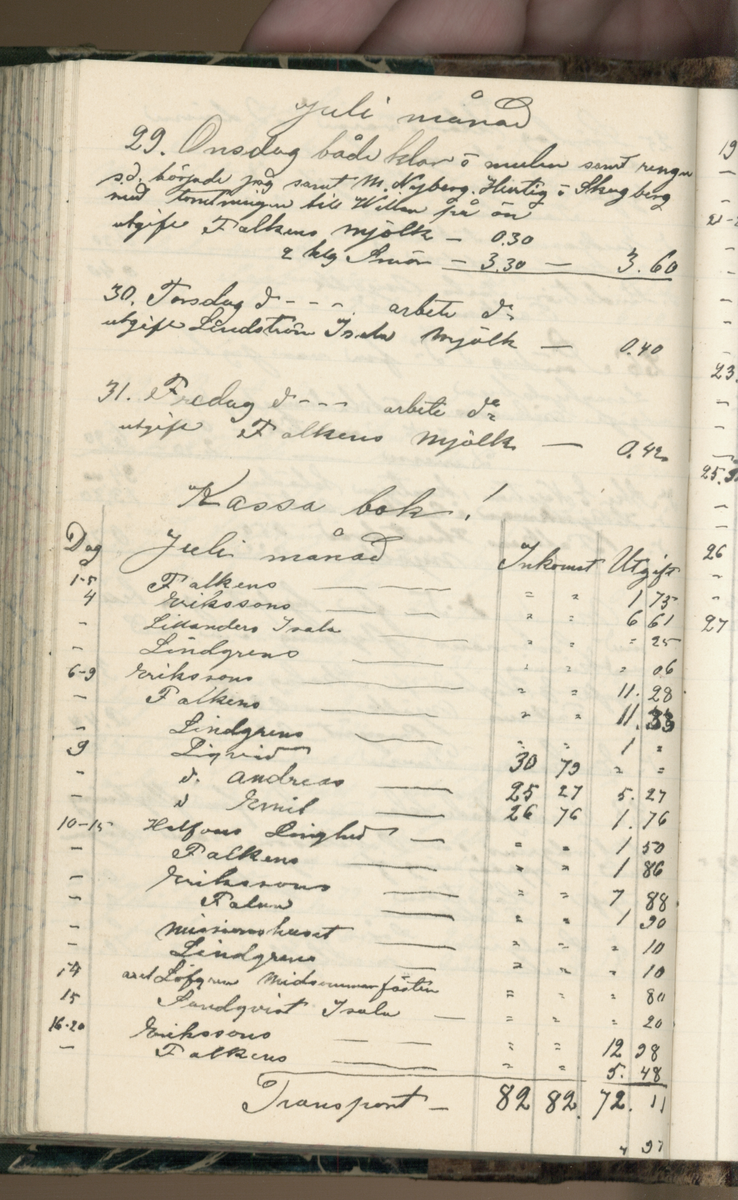 Juli månad
29. Onsdag både klar o mulen samt regn
s.d. började jag samt M. Nyberg. Hertig o Skogberg
med tomtningen till Willan på ön
utgift Falkens mjölk — 0.30
2 klg Smör — 3.30 — 3.60
30. Torsdag d - - - . arbete do
utgift Lindström Isala mjölk — 0.40
31. Fredag d - - - arbete do
utgift Falkens mjölk — 0.42
Kassa bok!
Dag Juli månad Inkomst Utgift
1-5 Falkens — " " 1 75
4 Erikssons — " " 6 61
- Lillanders Isala " " " 25
- Lindgrens — " " " 06
6-9 Erikssons — " " 11. 28
- Falkens — " " 11. 33
- Lindgrens — " " 1 "
9 Liqvid 30 79 " "
- d. Andreas — 25 27 5. 27
- d Emil — 26 76 1. 76
10-15 Linghed — " " 1 50
- Falkens — " " 1 86
- Erikssons — " " 7 88
- Falun — " " 1 90
- missionshuset — " " " 10
- Lindgrens — " " " 10
14 Axel Löfgren Midsommarfästen " " " 80
15 Sandqvist Isala — " " " 20
16-20 Erikssons — " " 12 98
- Falkens — " " 5. 48
Transport — 82 82. 72. 11
19
21-2
23.
26
27